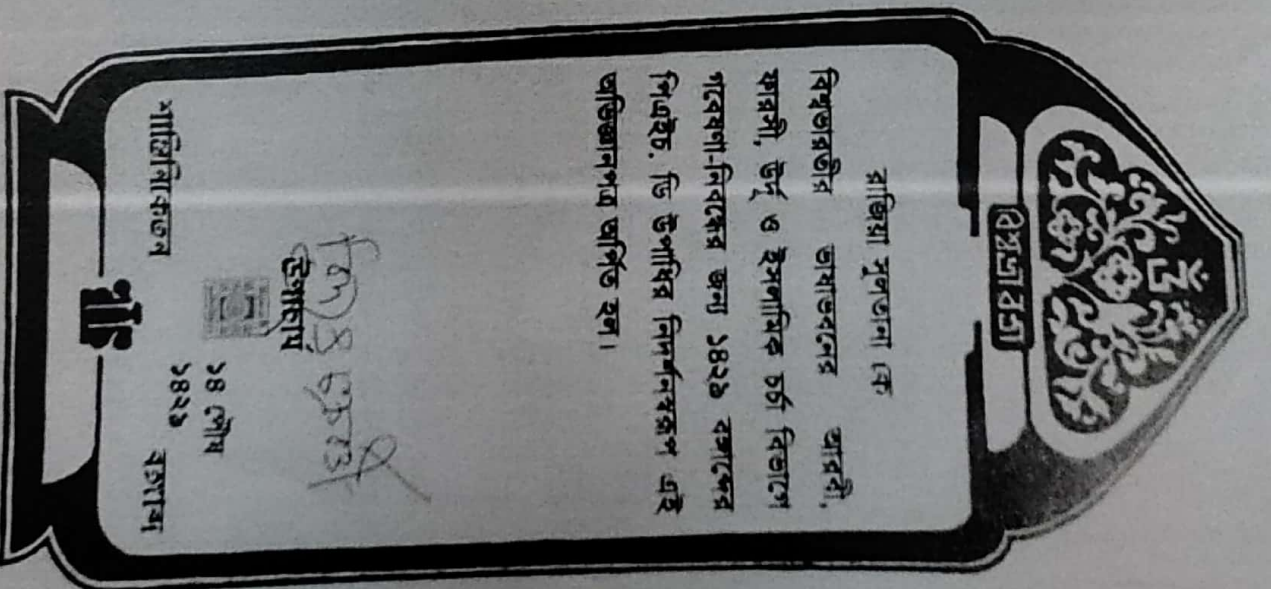 বিশ্বভারতী
রাজিয়া সুলতানা কে
বিশ্বভারতীর ভাষাভবনের আরবী,
ফারসী, উর্দু ও ইসলামিক চর্চা বিভাগে
গবেষণা-নিবন্ধের জন্য ১৪২৯ বঙ্গাব্দের
পিএইচ. ডি উপাধির নিদর্শনস্বরূপ এই
অভিজ্ঞানপত্র অর্পিত হল।
উপাচার্য
১৪ পৌষ
শান্তিনিকেতন ১৪২৯ বঙ্গাব্দ